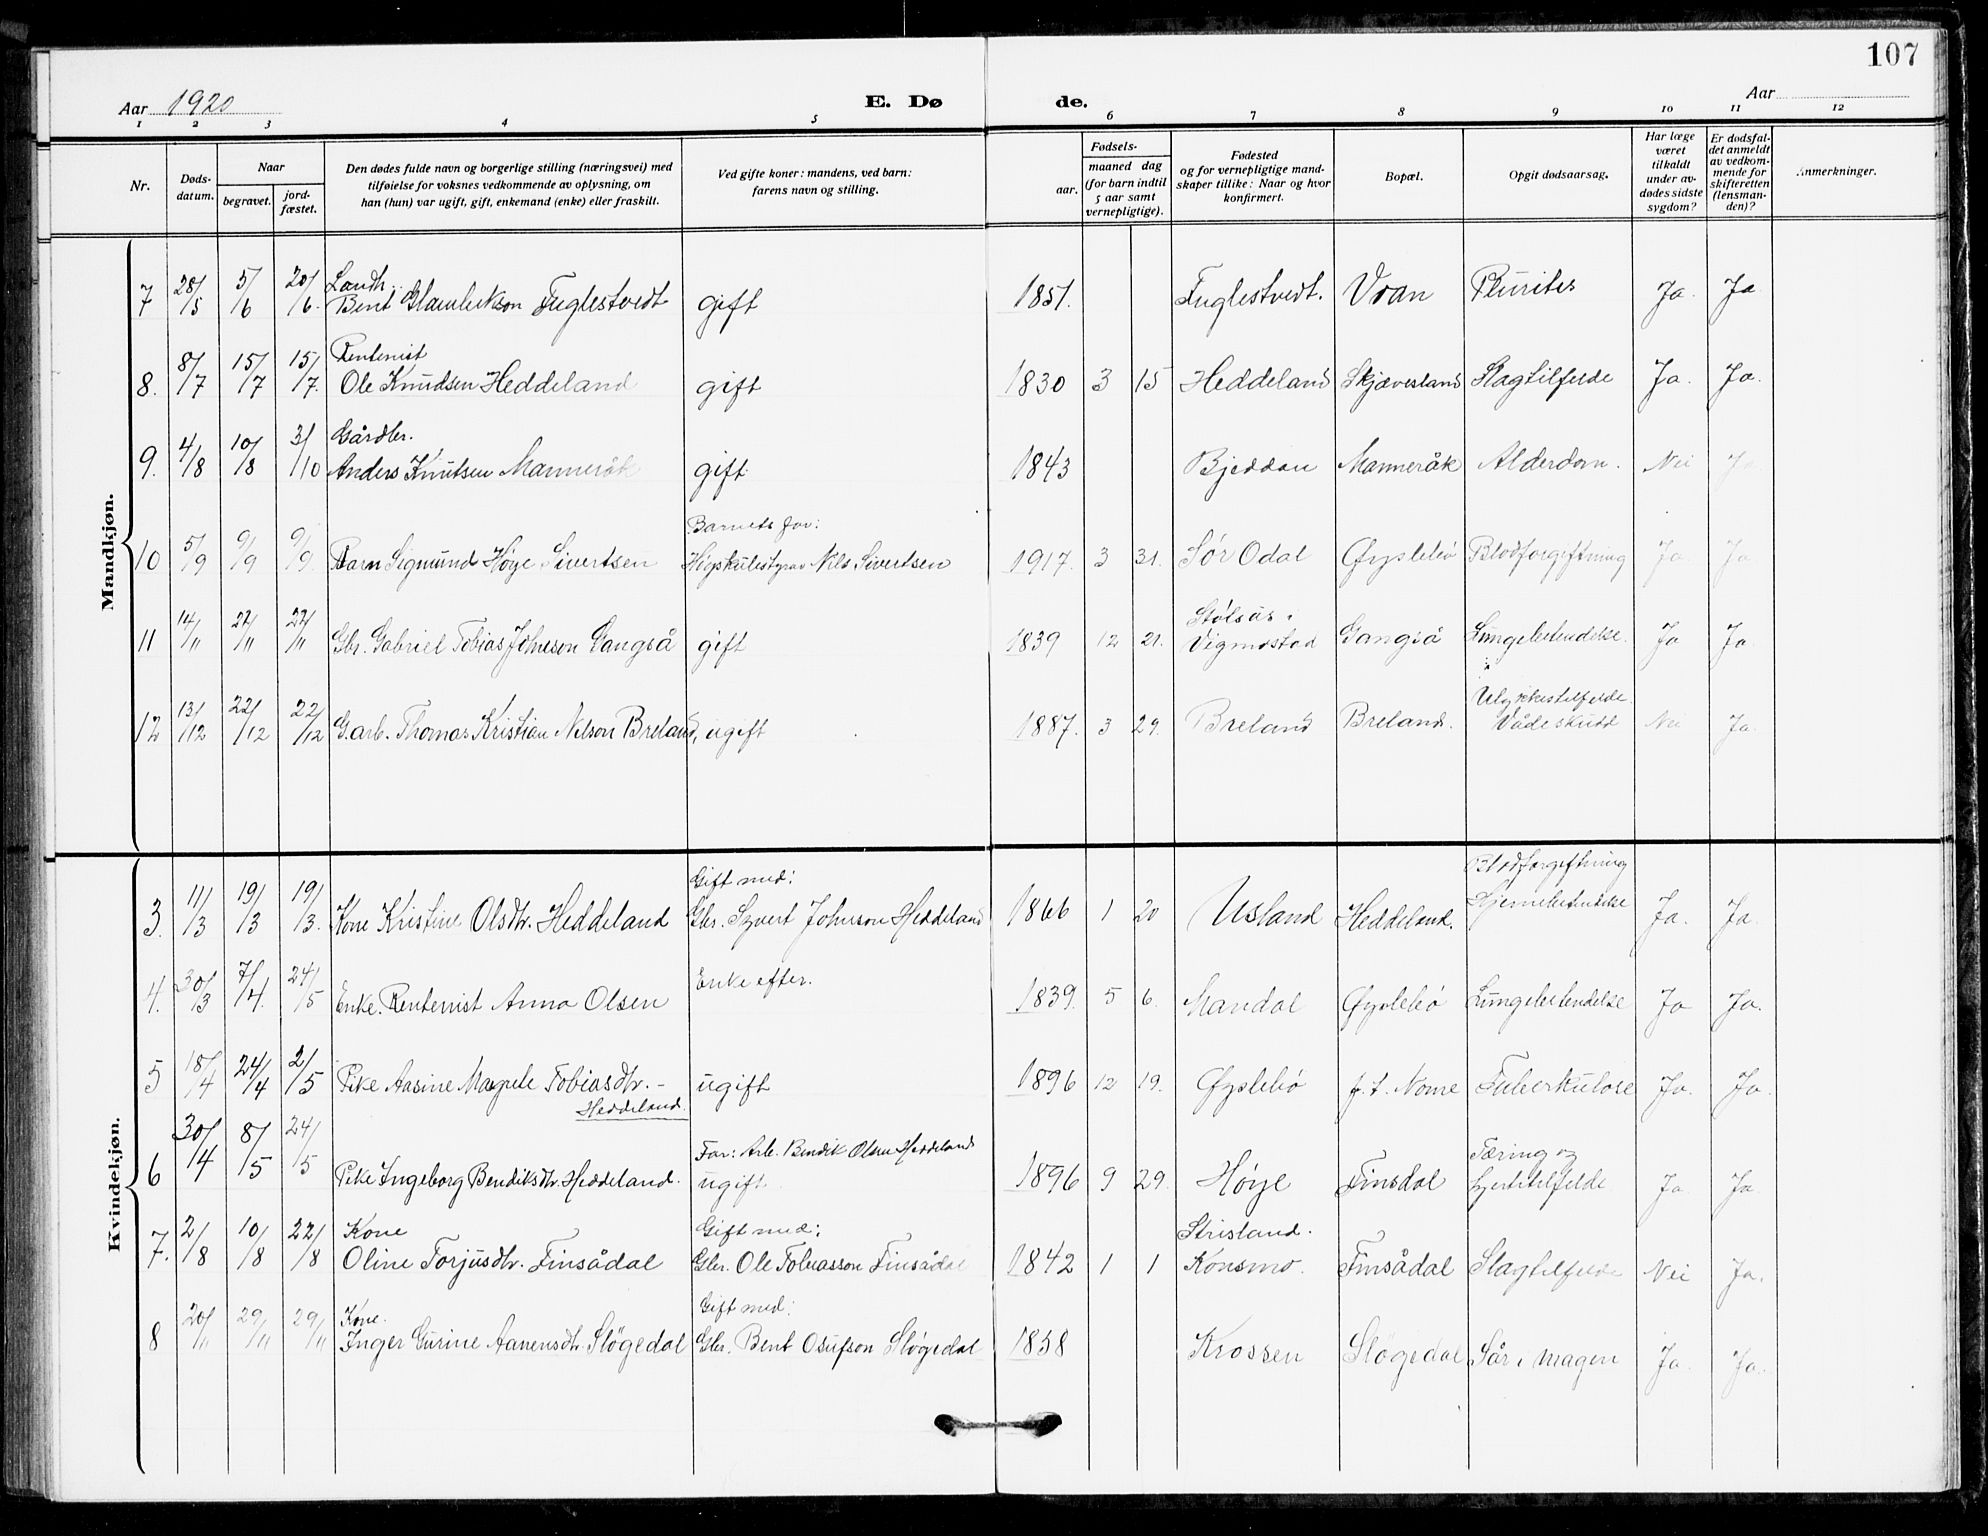 107
Aar 1920 E. Døde. Aar
1 2 3 4 5 6 7 8 9 10 11 12
Nr. Døds-datum. Naar begravet. jord-fæstet. Den dødes fulde navn og borgerlige stilling (næringsvei) med tilføielse for voksnes vedkommende av oplysning, om han (hun) var ugift, gift, enkemand (enke) eller fraskilt. Ved gifte koner: mandens, ved barn: farens navn og stilling. Fødsels- aar. maaned dag (for barn indtil 5 aar samt vernepligtige). Fødested og for vernepligtige mand-skaper tillike: Naar og hvor konfirmert. Bopæl. Opgit dødsaarsag. Har læge været tilkaldt under av-dødes sidste sygdom? Er dødsfal-det anmeldt av vedkom-mende for skifteretten (lensman-den)? Anmerkninger.
Mandkjøn.
7 28/5 5/6 20/6. Bent Fuglestvedt gift 1851. Fuglestvedt. Vran Plurites Ja. Ja
Rentenist
8. 8/7 15/7 15/7. Ole Knudsen Heddeland gift 1830 3 15 Heddeland Skjævesland Slagtilfelde Ja. Ja.
Gårdbr.
9. 4/8 10/8 3/10 Anders Knutsen Manneråk gift 1843 Bjeddan Manneråk Alderdom. Nei Ja
Barnets far:
10 5/9 9/9 9/9. Barn Sigmund Høye Sivertsen Nils Sivertsen 1917. 3 31. Sør Odal Øyslebø Blodforgiftning Ja Ja
Stølsås i
11 14/11 22/11 22/11 Gbr. Gabriel Tobias Johnson Gangså gift 1839 12 21. Vigmostad Gangså Lungebetendelse. Ja Ja
Ulykkestilfelde.
12 13/12 22/12 22/12 Garb. Thomas Kristian Nilson Breland, ugift 1887. 3 29. Breland Breland. Vådeskudd Nei Ja.
Kvindekjøn.
Gift med: Blodforgiftning
3. 11/3 19/3 19/3. Kone Kristine Olsdtr. Heddeland Gbr. Syvert Johnson Heddeland 1866 1 20 Usland Heddeland. Hjernebetendelse Ja. Ja.
Enke efter.
4. 30/3 7/4. 24/5 Enke. Rentenist Anna Olsen 1839. 5 6. Mandal Øyslebø Lungebetendelse Ja Ja.
5 18/4 24/4 2/5 Pike Aasine Tobiasdtr. – ugift 1896 12 19. Øyslebø f. t. Nome Tuberkulose Ja. Ja.
Heddeland.
Far: Arb. Bendik Olsen Heddeland Tæring og
6 30/4 8/5 24/5 Pike Ingeborg Bendiksdtr. Heddeland. ugift 1896 9 29. Høye Finsdal hjertetilfelde. Ja Ja
Kone Gift med: Strisland.
7. 2/8 10/8 22/8 Oline Torjusdtr. Finsådal Gbr. Ole Tobiasson Finsådal 1842 1 1 Konsmo. Finsådal Slagtilfelde Nei Ja.
Kone. Gift med:
8 20/11 29/11 29/11 Inger Gurine Aanensdtr. Sløgedal Gbr. Bent Osufson Sløgedal 1858 Krossen Sløgedal Sår i magen Ja. Ja.